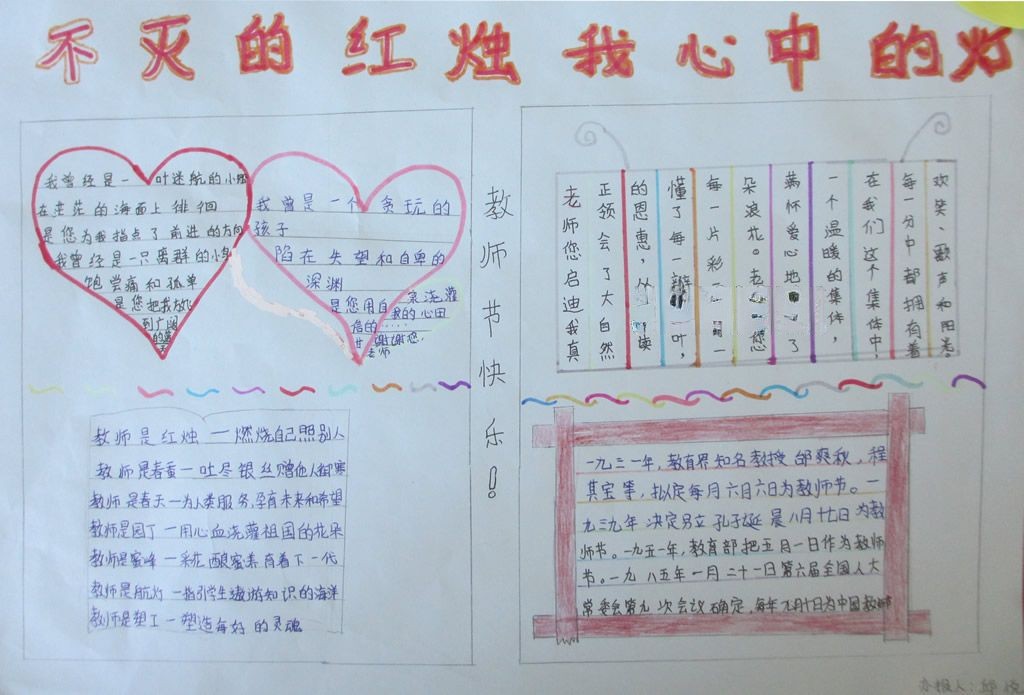 不灭的红烛 我心中的灯
我曾经是一叶迷航的小船
在茫茫的海面上徘徊
是您为我指点了前进的方向
我曾经是一只离群的小鸟
饱尝痛和孤单
是您把我放心
到广阔
的蓝
我曾是一个贪玩的
孩子
陷在失望和自卑的
深渊
是您用自 浇灌
我的心田
信的……
谢谢您,
老师
教师节快乐!
老师您启迪我真
正领会了大自然
的恩惠,从 读
懂了每一瓣 一叶,
每一片彩 一
朵浪花。老 您
满怀爱心地 了
一个温暖的集体,
在我们这个集体中,
每一分中都拥有着
欢笑、歌声和阳光。
教师是红烛一燃烧自己照别人
教师是春蚕一吐尽银丝赠他人御寒
教师是春天一为人类服务,孕育未来和希望
教师是园丁一用心血浇灌祖国的花朵
教师是蜜峰一采花酿蜜养育着下一代
教师是航灯一指引学生遨游知识的海洋
教师是塑工一塑造每好的灵魂
一九三一年,教育界知名教授邰爽秋,程
其宝等,拟定每月六月六日为教师节。一
九三九年决定另立孔子诞晨八月廿七日为教
师节。一九五一年,教育部把五月一日作为教师
节。一九八五年一月二十一日第六届全国人大
常委会第九次会议确定,每年九月十日为中国教师
办报人: